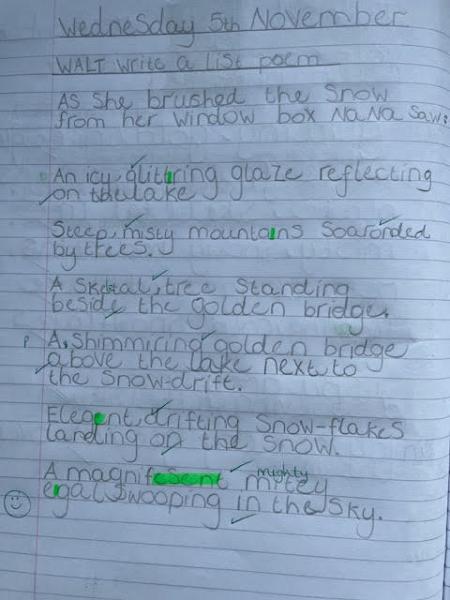 Wednesday 5th November
WALT write a list poem
As she brushed the snow
from her window box NaNa saw:
An icy, glittring glaze reflecting
on the lake
Steep, misty mountains soaronded
by trees.
A Skeetal, tree standing
beside the golden bridge.
P A, shimmiring golden bridge
above the lake next to
the snow-drift.
Elegent, drifting snow-flakes
landing on the snow.
mighty
A magnifesent mitey
egal swooping in the sky.